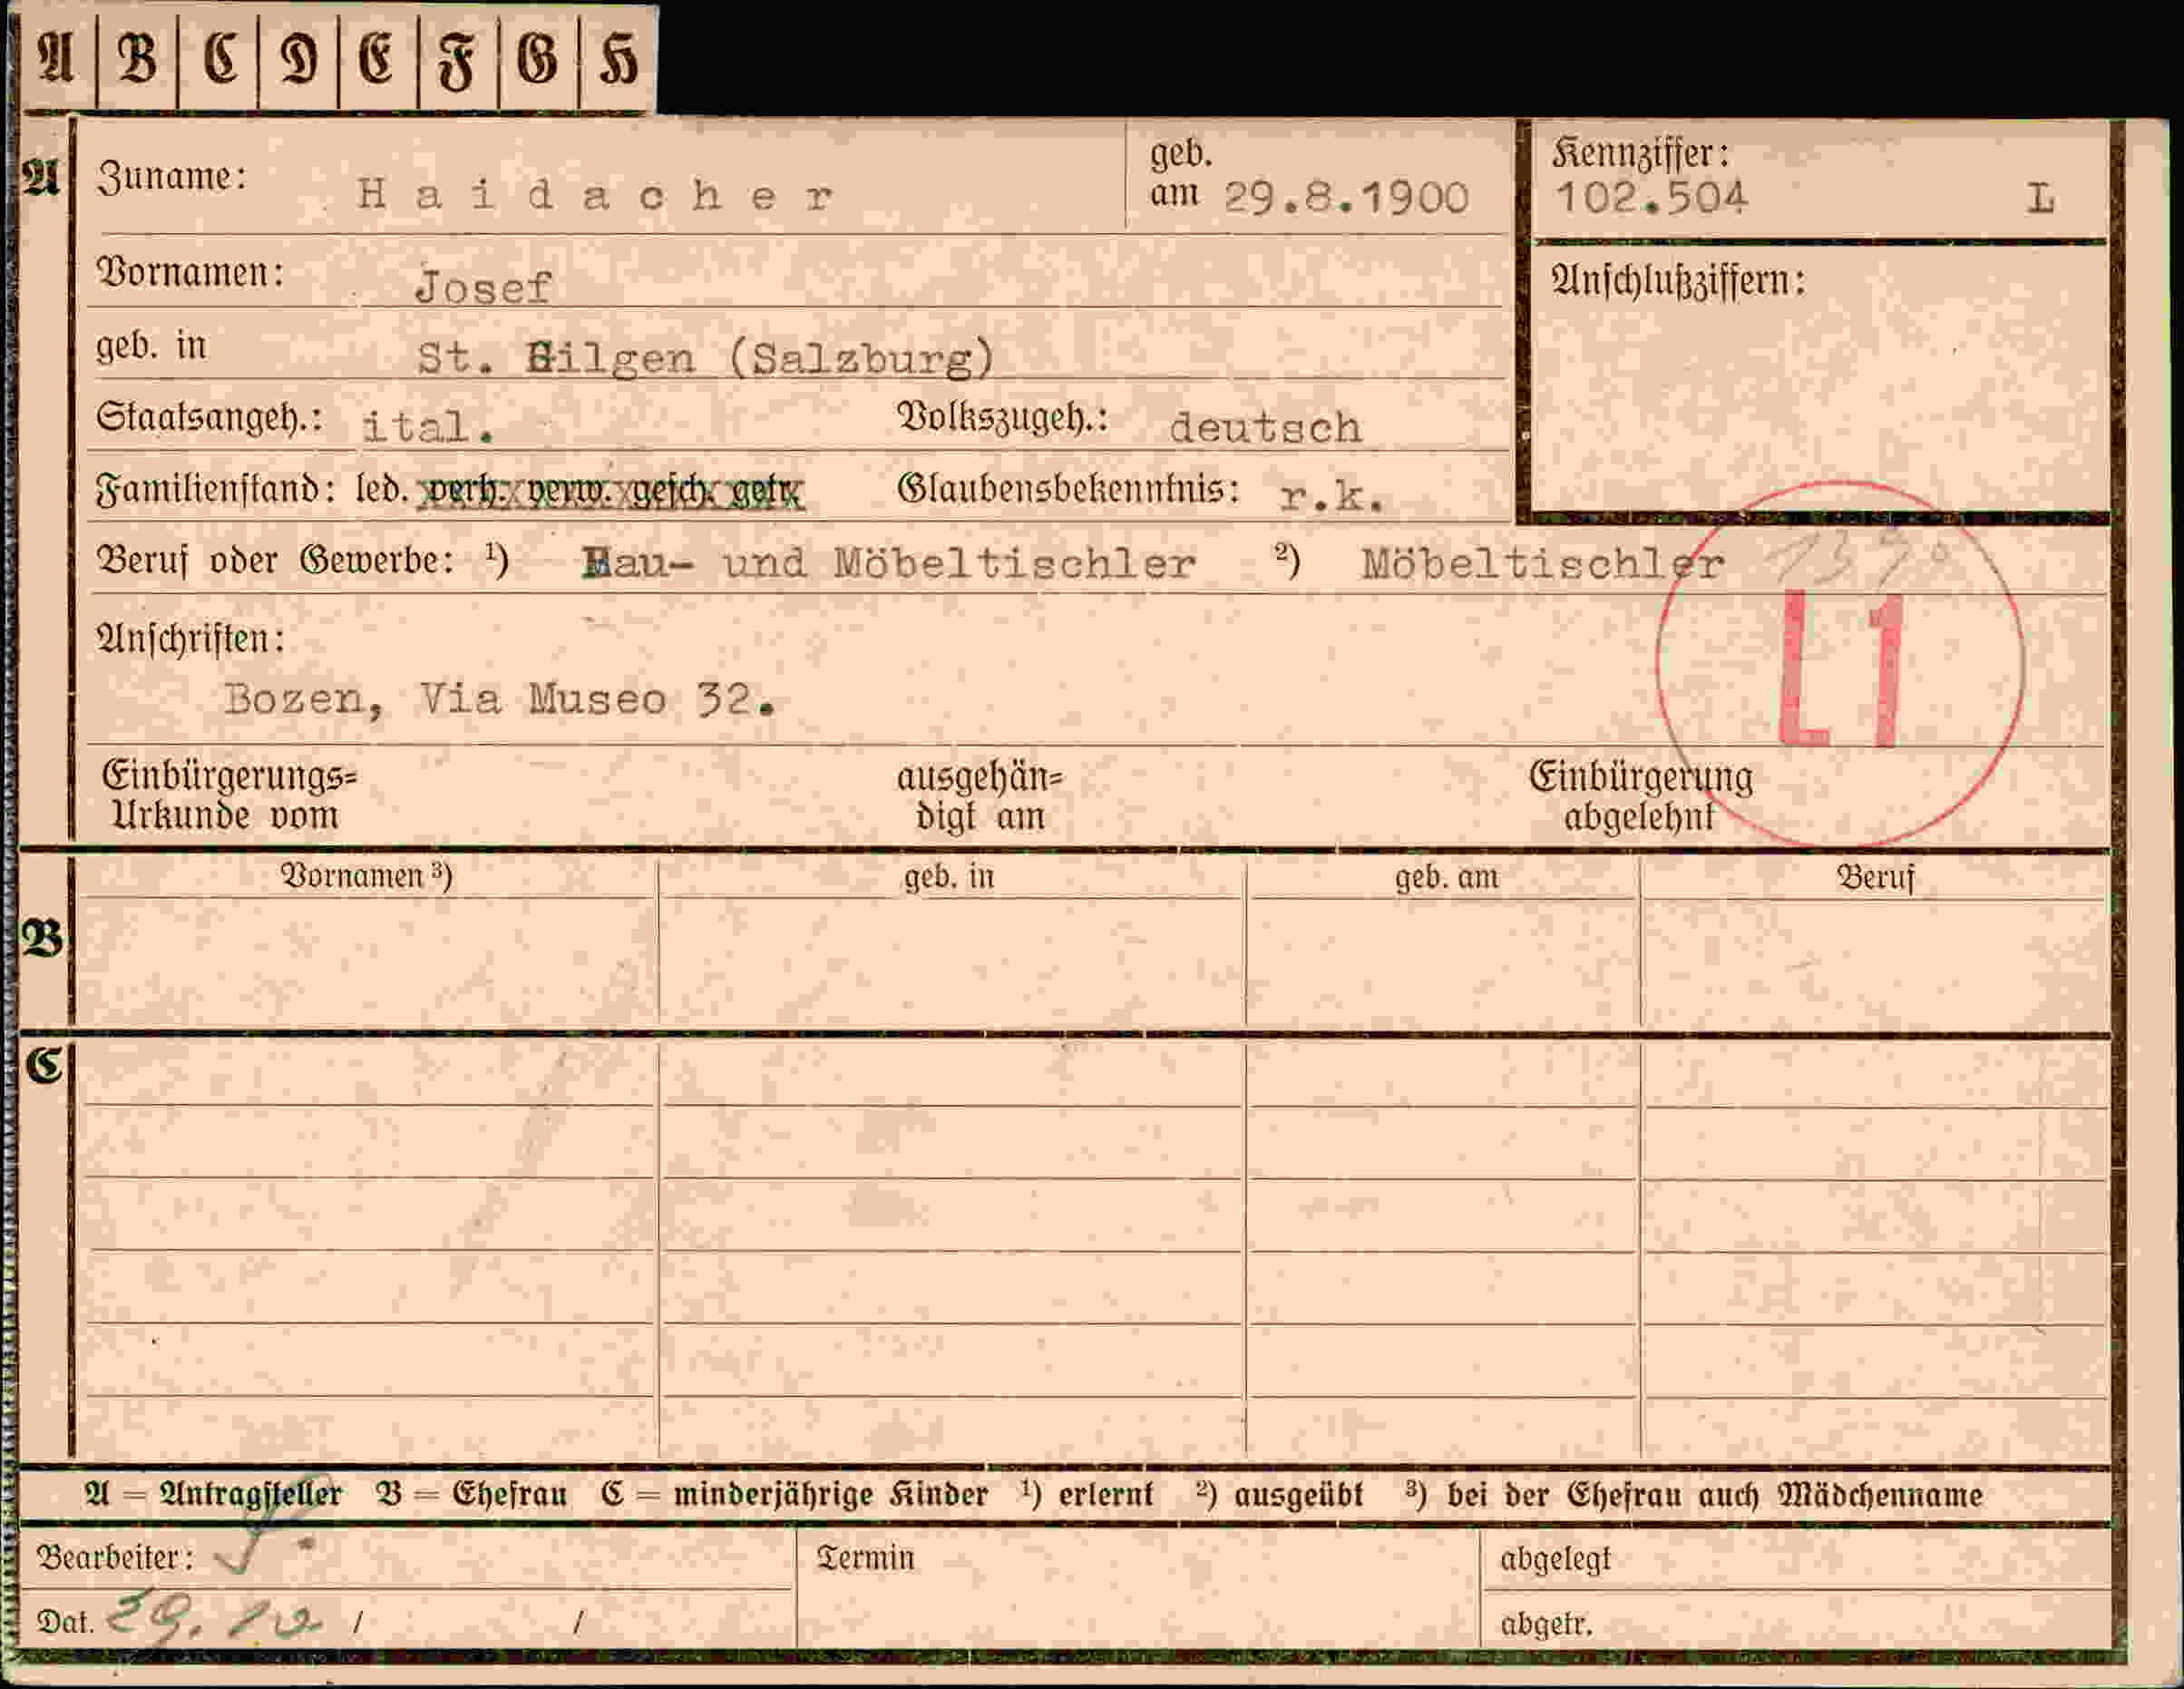 A B C D E F G H
A Zuname: Haidacher geb. am 29.8.1900 Kennziffer: 102.504 L
Vornamen: Josef Anschlußziffern:
geb. in St. Gilgen (Salzburg)
Staatsangeh.: ital. Volkszugeh.: deutsch
Familienstand: led. verh. verw. gesch. getr. Glaubensbekenntnis: r.k.
Beruf oder Gewerbe: ¹) Bau- und Möbeltischler ²) Möbeltischler
L1
Anschriften:
Bozen, Via Museo 32.
Einbürgerungs= ausgehän= Einbürgerung
Urkunde vom digt am abgelehnt
B Vornamen ³) geb. in geb. am Beruf
C
A = Antragsteller B = Ehefrau C = minderjährige Kinder ¹) erlernt ²) ausgeübt ³) bei der Ehefrau auch Mädchenname
Bearbeiter: Termin abgelegt
Dat. 29. 12 / / abgetr.